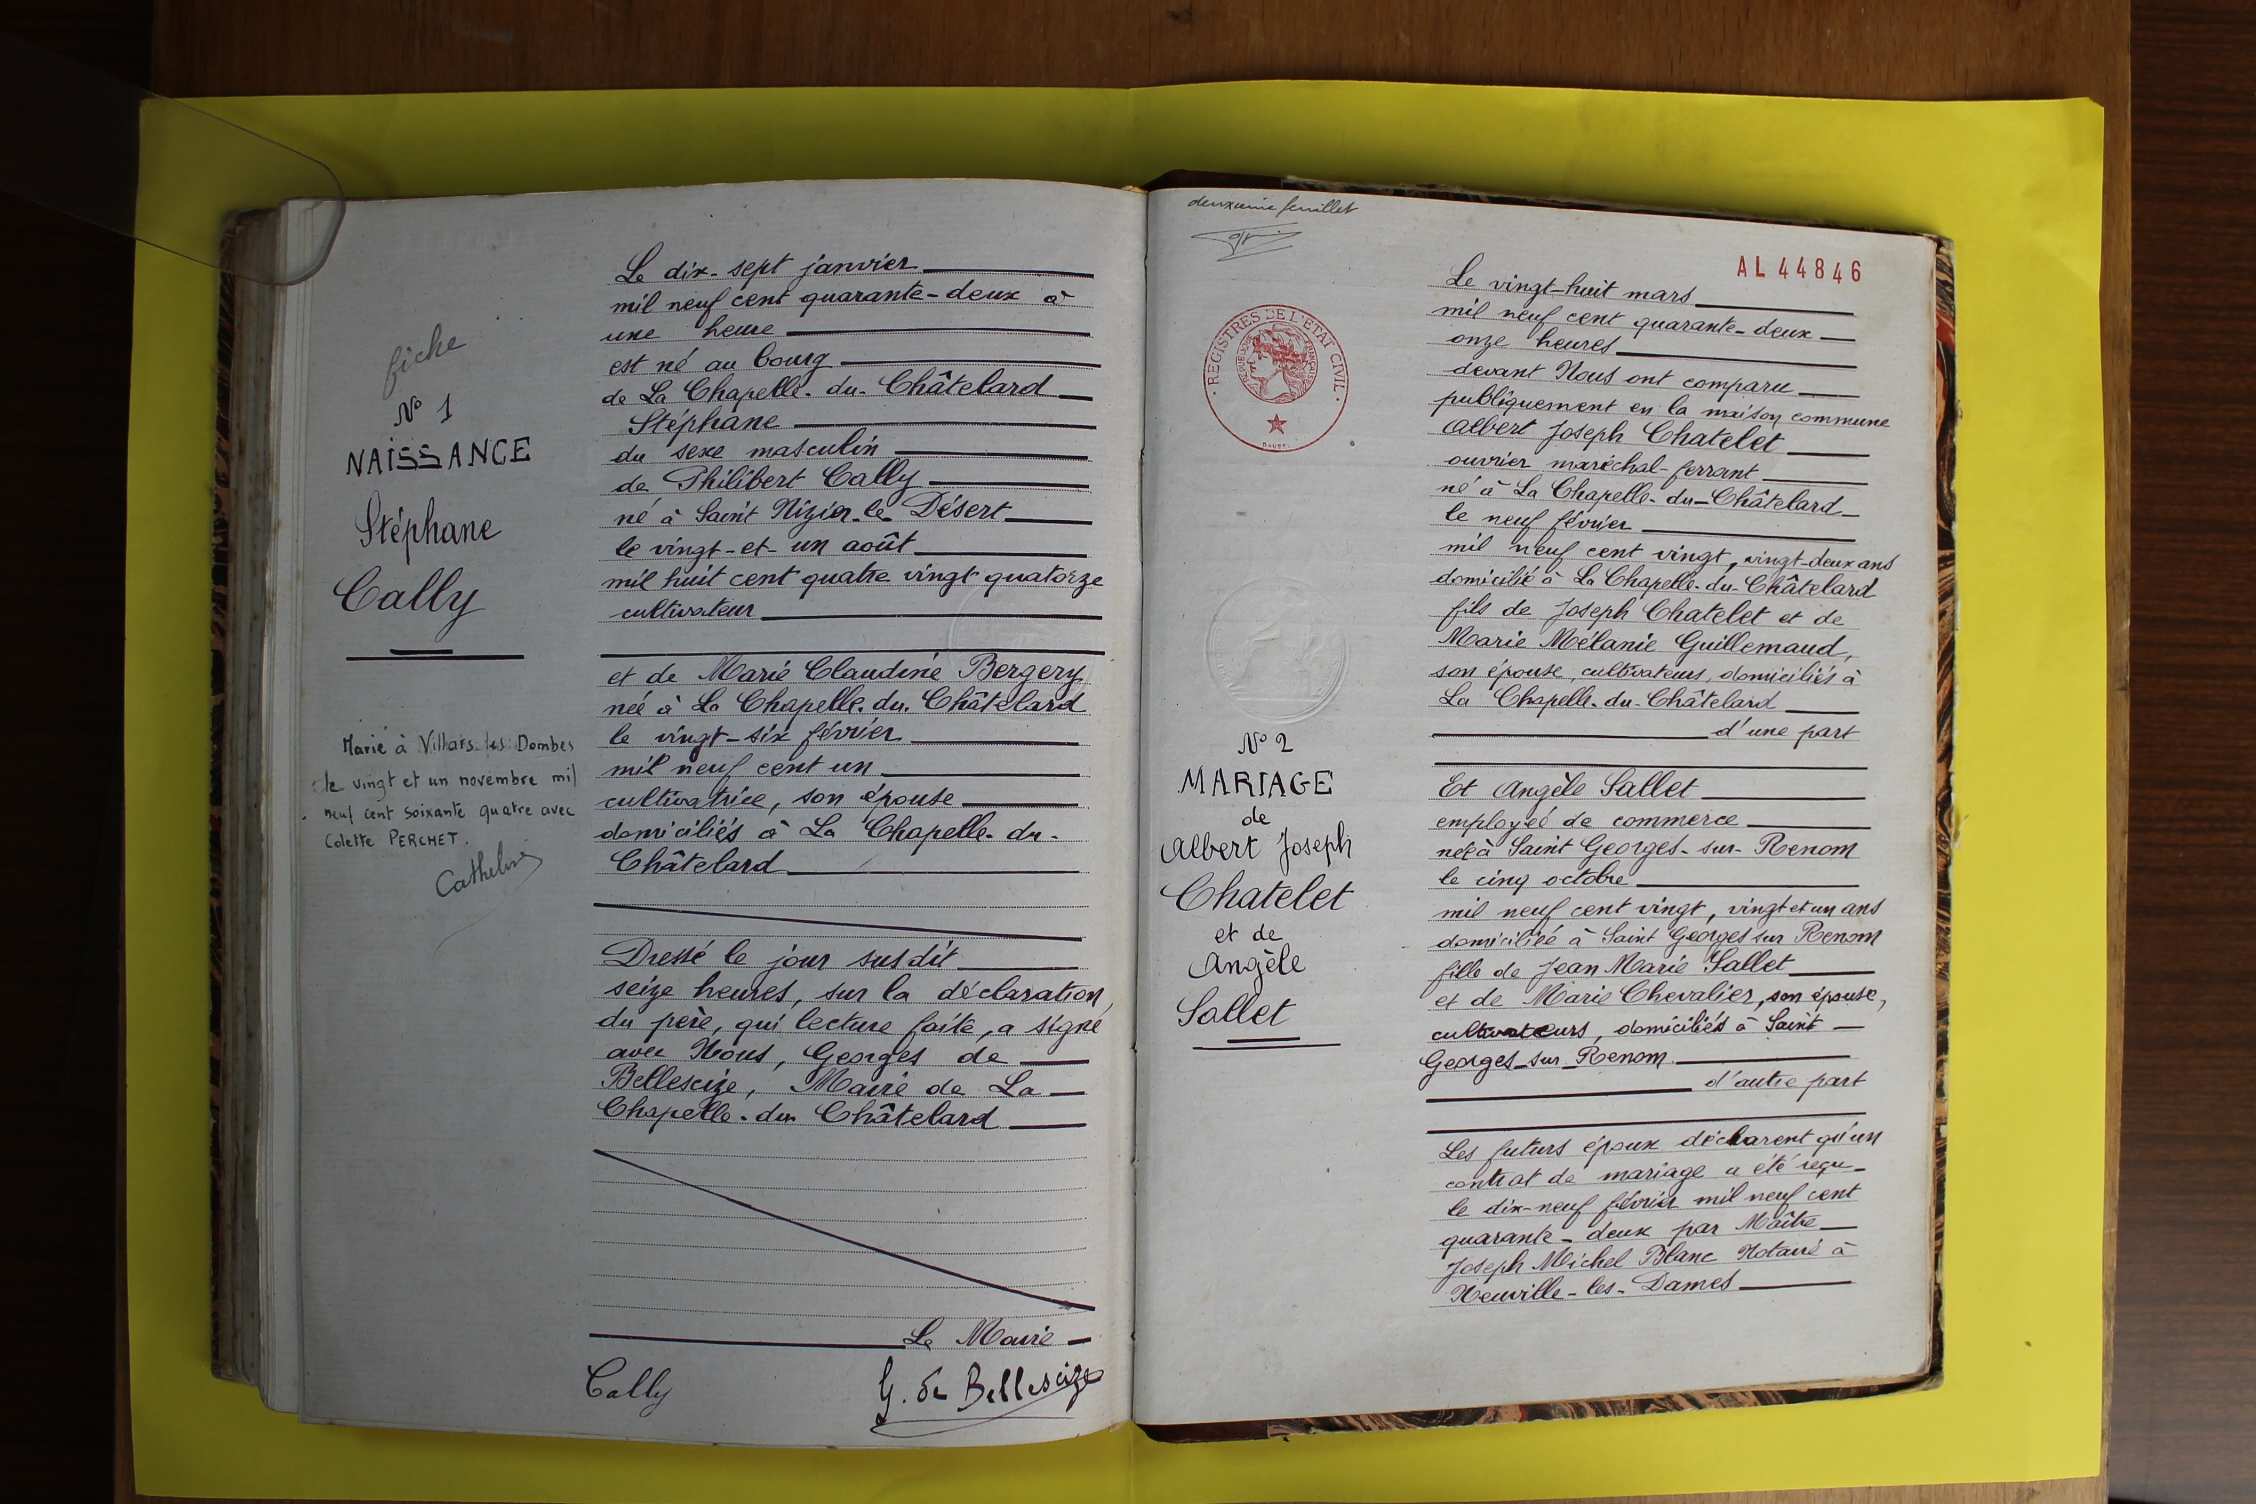 fiche
N° 1
NAISSANCE
Stéphane
Cally
Marié à Villars-les-Dombes
le vingt et un novembre mil
neuf cent soixante quatre avec
Colette PERCHET.
Le dix-sept janvier
mil neuf cent quarante-deux à
une heure
est né au bourg
de La Chapelle-du-Châtelard
Stéphane
du sexe masculin
de Philibert Cally
né à Saint Nizier-le-Désert
le vingt-et-un août
mil huit cent quatre vingt quatorze
cultivateur
et de Marie Claudine Bergery
née à La Chapelle-du-Châtelard
le vingt-six février
mil neuf cent un
cultivatrice, son épouse
domiciliés à La Chapelle-du-
Châtelard
Dressé le jour susdit
seize heures, sur la déclaration
du père, qui lecture faite, a signé
avec Nous, Georges de
Bellescize, Maire de La
Chapelle-du-Châtelard
Le Maire
Cally
G. de Bellescize
deuxième feuillet
AL 44846
REGISTRES DE L'ETAT CIVIL
N° 2
MARIAGE
de
Albert Joseph
Chatelet
et de
Angèle
Sallet
Le vingt-huit mars
mil neuf cent quarante-deux
onze heures
devant Nous ont comparu
publiquement en la maison commune
Albert Joseph Chatelet
ouvrier maréchal-ferrant
né à La Chapelle-du-Châtelard
le neuf février
mil neuf cent vingt, vingt-deux ans
domicilié à La Chapelle-du-Châtelard
fils de Joseph Chatelet et de
Marie Mélanie Guillemaud,
son épouse, cultivateurs, domiciliés à
La Chapelle-du-Châtelard
d'une part
Et Angèle Sallet
employée de commerce
née à Saint Georges-sur-Renom
le cinq octobre
mil neuf cent vingt, vingt et un ans
domiciliée à Saint Georges sur Renom
fille de Jean Marie Sallet
et de Marie Chevalier, son épouse,
cultivateurs, domiciliés à Saint
Georges-sur-Renom
d'autre part
Les futurs époux déclarent qu'un
contrat de mariage a été reçu
le dix-neuf février mil neuf cent
quarante-deux par Maître
Joseph Michel Blanc Notaire à
Neuville-les-Dames